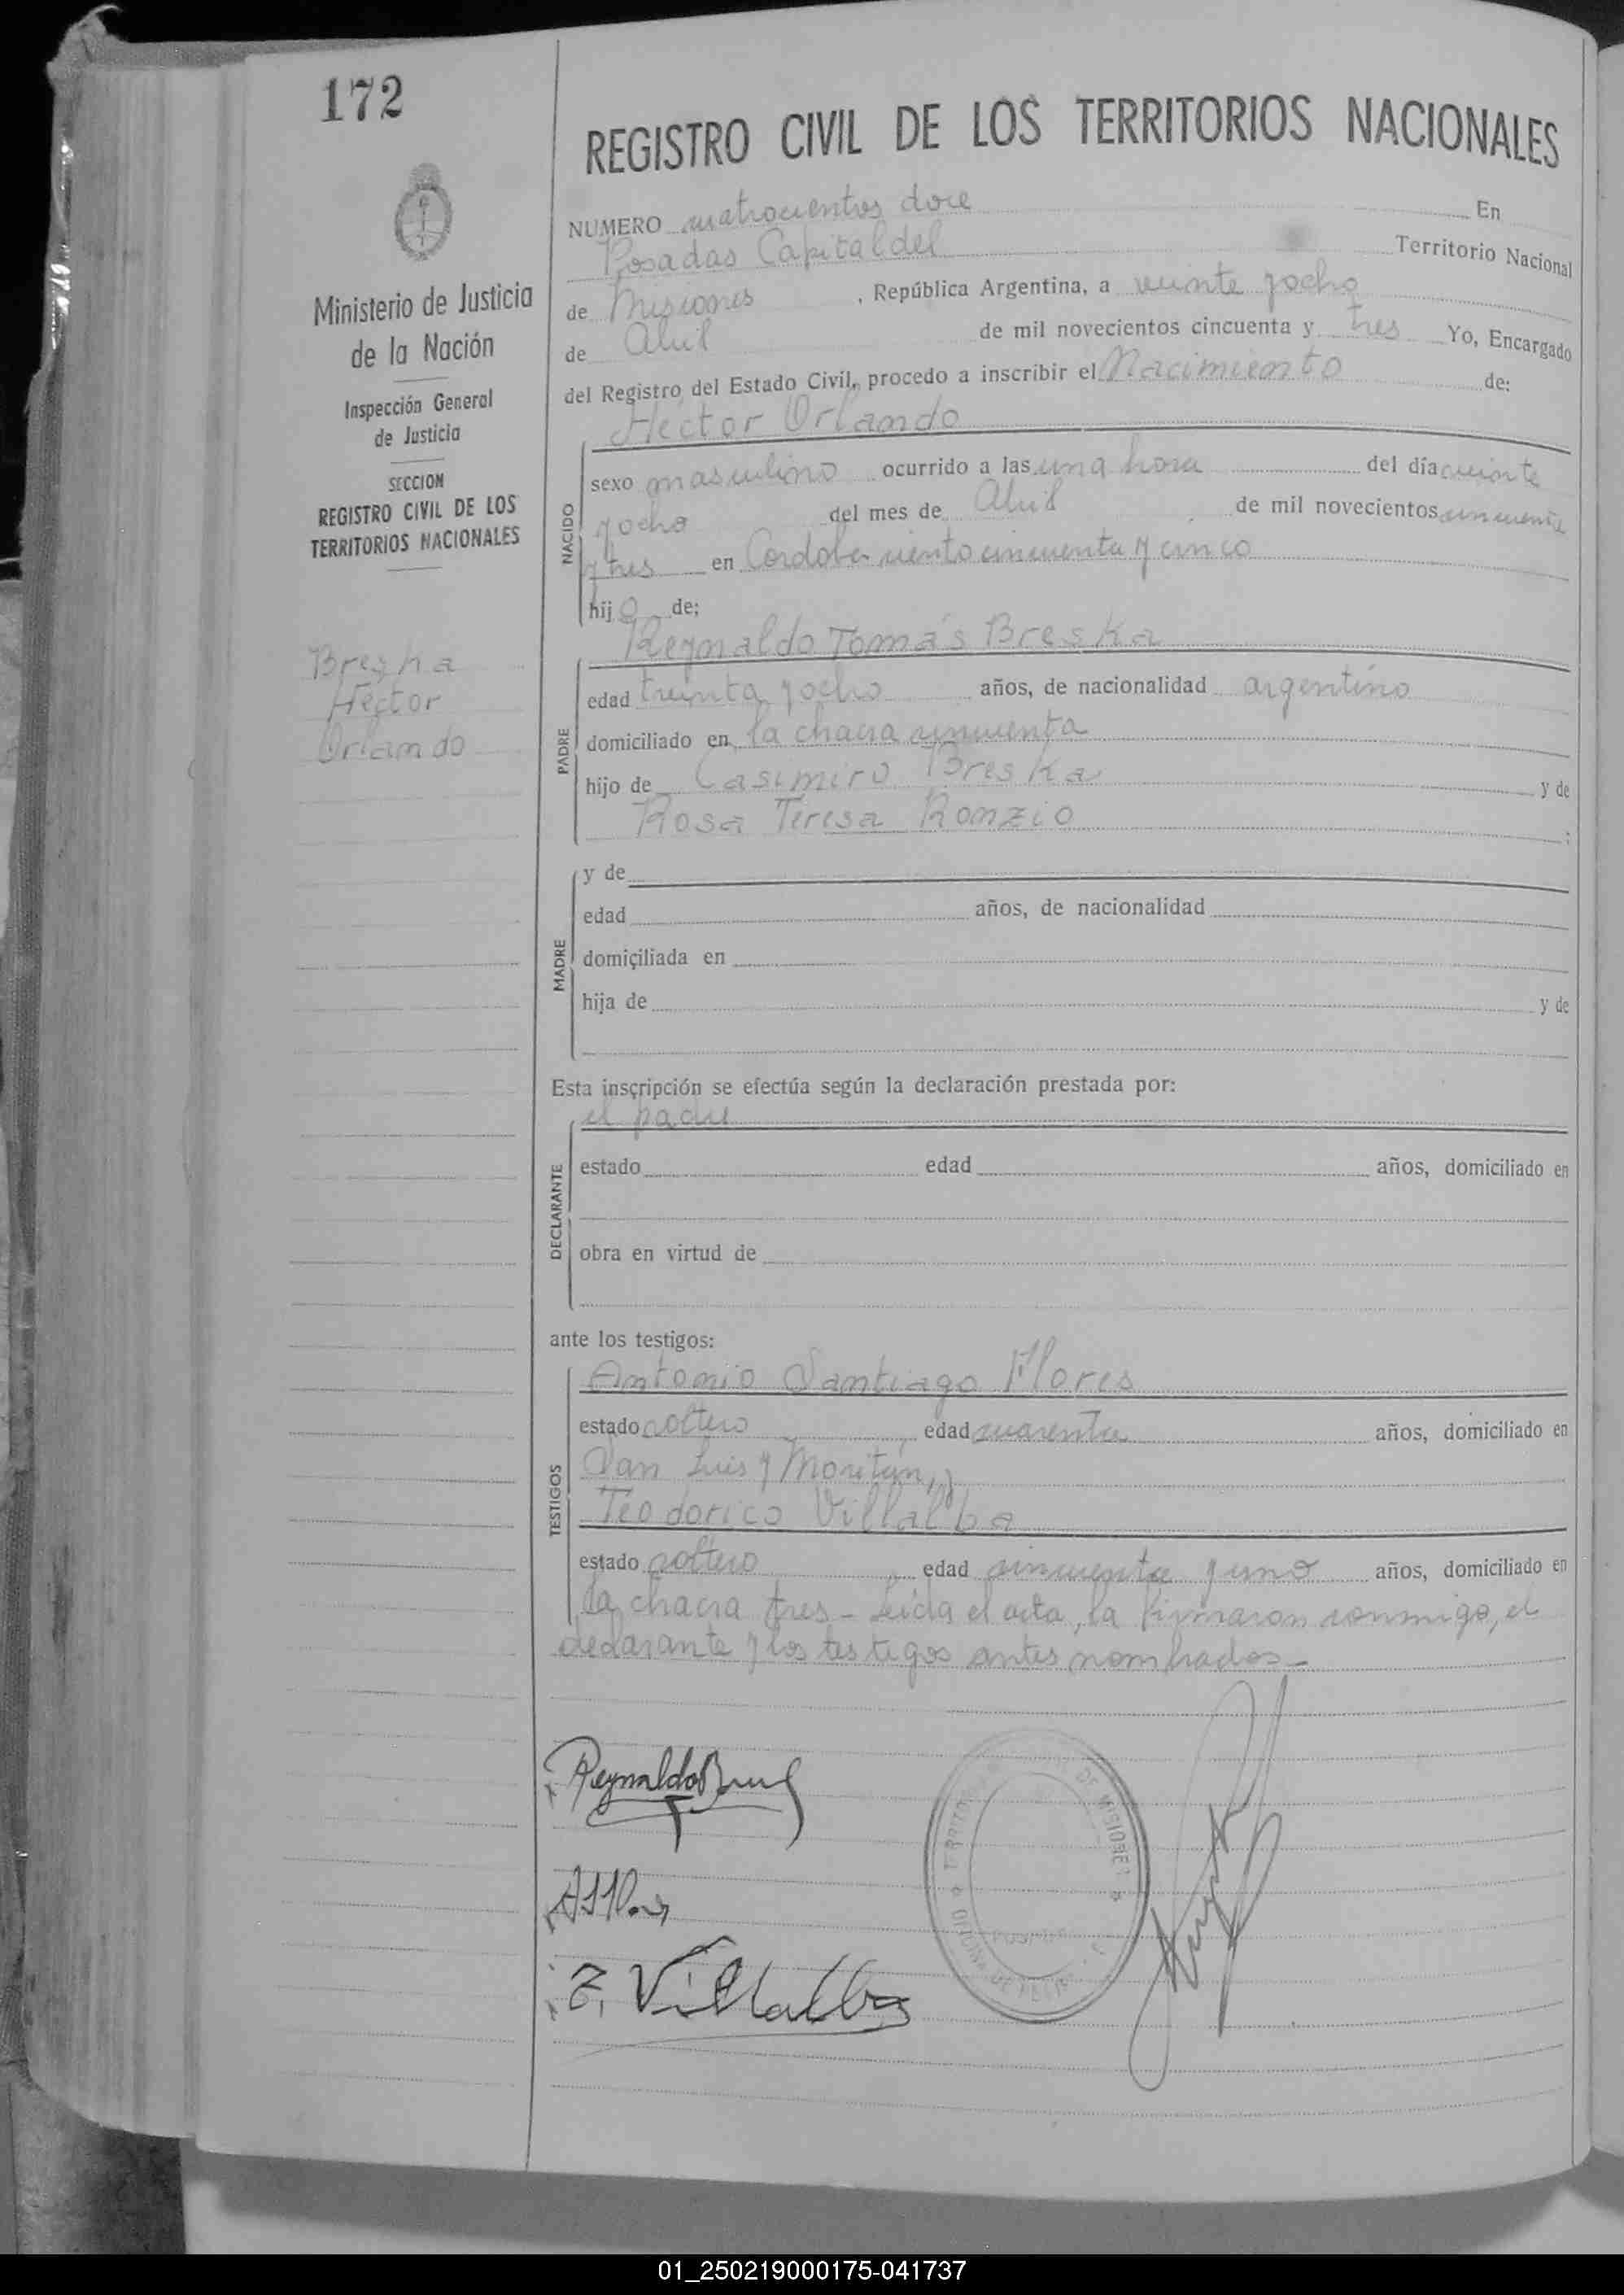 172
REGISTRO CIVIL DE LOS TERRITORIOS NACIONALES
Ministerio de Justicia
de la Nación
Inspección General
de Justicia
SECCION
REGISTRO CIVIL DE LOS
TERRITORIOS NACIONALES
Breska
Héctor
Orlando
NUMERO cuatrocientos doce En
Posadas Capital del Territorio Nacional
de Misiones, República Argentina, a veinte y ocho
de Abril de mil novecientos cincuenta y tres Yo, Encargado
del Registro del Estado Civil, procedo a inscribir el Nacimiento de:
Héctor Orlando
NACIDO
sexo masculino ocurrido a las una hora del día veinte
y ocho del mes de Abril de mil novecientos cincuenta
y tres en Cordoba ciento cincuenta y cinco
hijo de:
Reynaldo Tomás Breska
PADRE
edad treinta y ocho años, de nacionalidad argentino
domiciliado en la chacra cincuenta
hijo de Casimiro Breska y de
Rosa Teresa Ronzio ;
MADRE
y de
edad años, de nacionalidad
domiciliada en
hija de y de
Esta inscripción se efectúa según la declaración prestada por:
el padre
DECLARANTE
estado edad años, domiciliado en
obra en virtud de
ante los testigos:
Antonio Santiago Flores
TESTIGOS
estado soltero, edad cuarenta años, domiciliado en
San Luis y Moritán, y
Teodorico Villalba
estado soltero, edad cincuenta y uno años, domiciliado en
la chacra tres - Leída el acta, la firmaron conmigo, el
declarante y los testigos antes nombrados -
Reynaldo T
DE MISIONES
POSADAS
T. Villalba
01_250219000175-041737